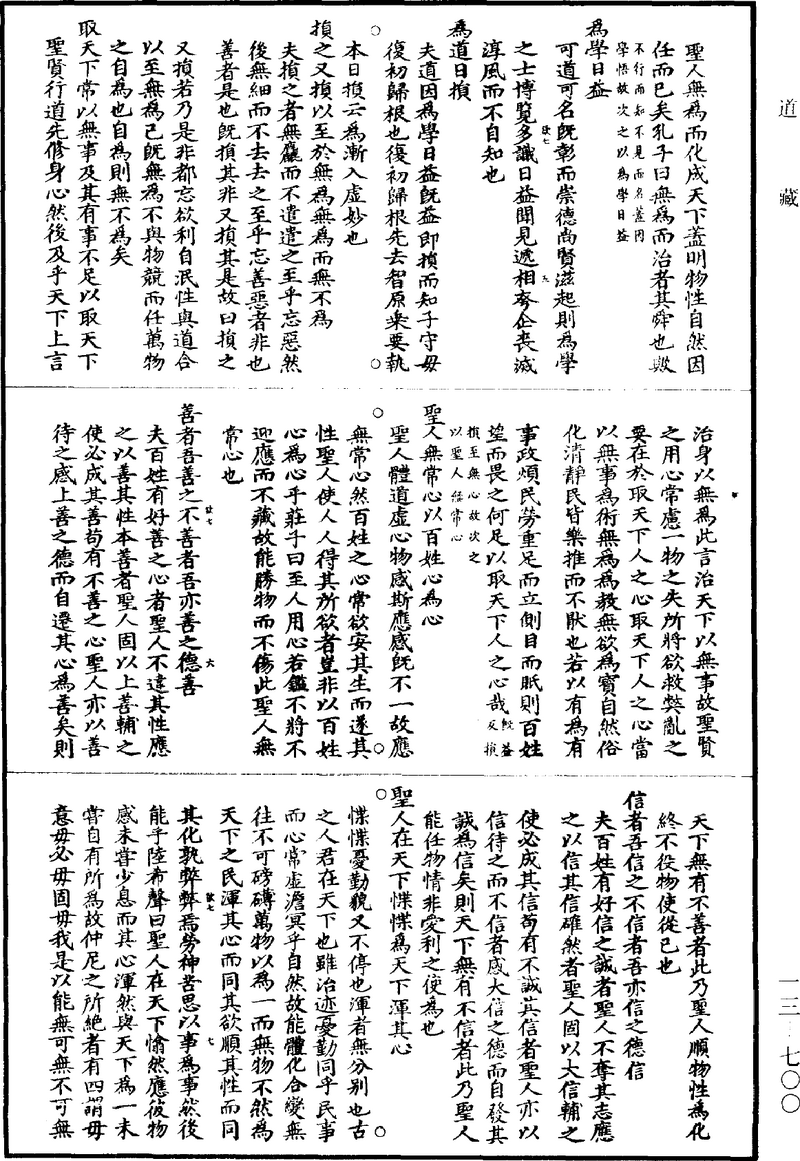 道藏
聖人無為而化成天下蓋明物性自然因
任而已矣孔子曰無為而治者其舜也歟
不行而知不見而名蓋因
學悟故次之以為學日益
為學日益
可道可名既彰而崇德尚賢滋起則為學
之士博覽多識日益聞見遞相夸企喪滅
淳風而不自知也
為道日損
夫道因為學日益既益即損而知子守母
復初歸根也復初歸根先去智原衆要執
本日損云為漸入虛妙也
損之又損以至於無為無為而無不為
夫損之者無麤而不遣遣之至乎忘惡然
後無細而不去去之至乎忘善惡者非也
善者是也既損其非又損其是故曰損之
又損若乃是非都忘欲利自泯性與道合
以至無為已既無為不與物競而任萬物
之自為也自為則無不為矣
取天下常以無事及其有事不足以取天下
聖賢行道先修身心然後及乎天下上言
治身以無為此言治天下以無事故聖賢
之用心常慮一物之失所將欲救弊亂之
要在於取天下人之心取天下人之心當
以無事為術無為為教無欲為寶自然俗
化清靜民皆樂推而不猒也若以有為有
事政煩民勞重足而立側目而眂則百姓
望而畏之何足以取天下人之心哉既益反損
損至無心故次之
以聖人無常心
聖人無常心以百姓心為心
聖人體道虛心物感斯應感既不一故應
無常心然百姓之心常欲安其生而遂其
性聖人使人人得其所欲者豈非以百姓
心為心乎莊子曰至人用心若鑑不將不
迎應而不藏故能勝物而不傷此聖人無
常心也
善者吾善之不善者吾亦善之德善
夫百姓有好善之心者聖人不違其性應
之以善其性本善者聖人固以上善輔之
使必成其善苟有不善之心聖人亦以善
待之感上善之德而自遷其心為善矣則
天下無有不善者此乃聖人順物性為化
終不役物使從已也
信者吾信之不信者吾亦信之德信
夫百姓有好信之誠者聖人不奪其志應
之以信其信確然者聖人固以大信輔之
使必成其信苟有不誠其信者聖人亦以
信待之而不信者感大信之德而自發其
誠為信矣則天下無有不信者此乃聖人
能任物情非愛利之使為也
聖人在天下惵惵為天下渾其心
惵惵憂勤貌又不停也渾者無分別也古
之人君在天下也雖治迹憂勤同乎民事
而心常虛澹冥乎自然故能體化合變無
往不可磅礡萬物以為一而無物不然為
天下之民渾其心而同其欲順其性而同
其化孰弊弊焉勞神苦思以事為事然後
能乎陸希聲曰聖人在天下愉然應彼物
感未嘗少息而其心渾然與天下為一未
嘗自有所為故仲尼之所絕者有四謂毋
意毋必毋固毋我是以能無可無不可無
一三—七〇〇